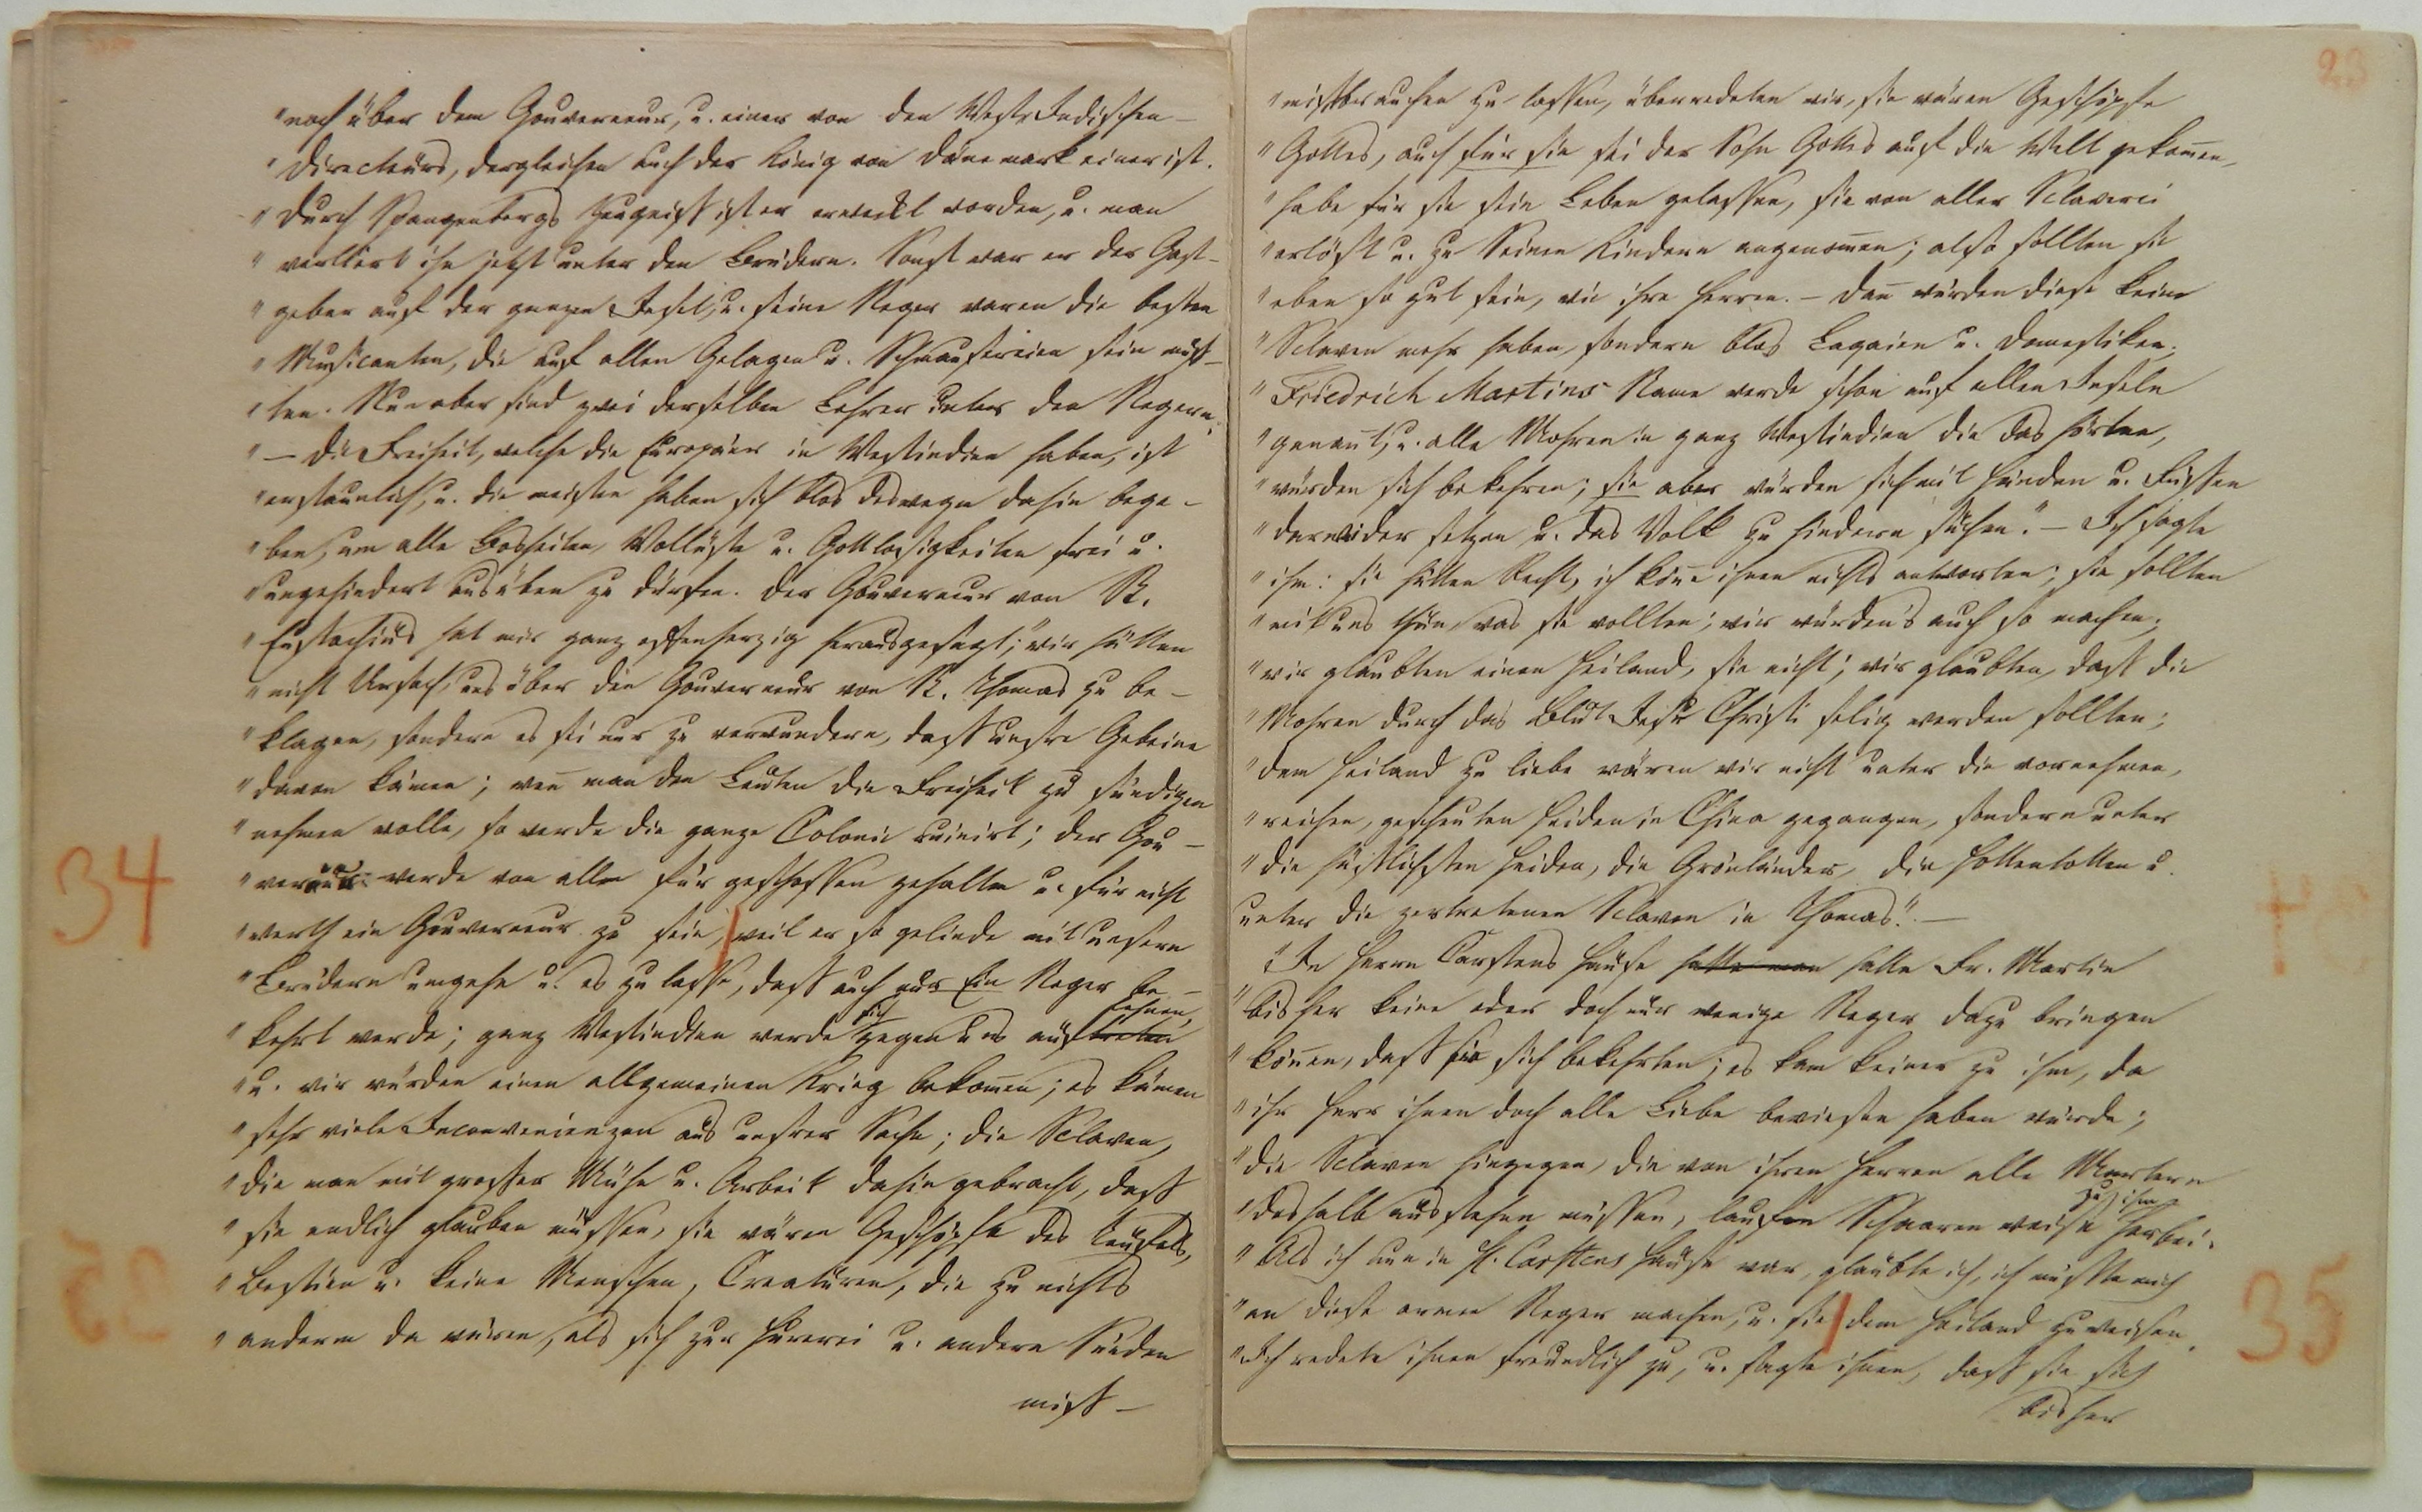 "noch über dem Gouverneur, u. einer von den West-Indischen-
"Directeurs, dergleichen auch der König von Dänemark einer ist.
"Durch Spangenbergs Zeugniss ist er erweckt worden, u. man
"verliert ihn jetzt unter den Brüdern. Sonst war er der Gast-
"geber auf der ganzen Insel, u. seine Neger waren die besten
"Musicanten, die auf allen Gelagen u. Schmausereien sein muss-
"ten. Nun aber sind zwei derselben Lehrer unter den Negern.
"— Die Freiheit, welche die Europäer in Westindien haben, ist
"erstaunlich, u. die meisten haben sich blos deswegen dahin bege-
"ben, um alle Bosheiten, Wollüste u. Gottlosigkeiten frei u.
"ungehindert ausüben zu dürfen. Der Gouverneur von St.
"Eustachius hat mir ganz offenherzig herausgesagt; "wir hätten
"nicht Ursach, uns über den Gouverneur von St. Thomas zu be-
"klagen, sondern es sei nur zu verwundern, dass unsre Gebeine
"davon kämen; weñ man den Leuten die Freiheit zu sündigen
"nehmen wolle, so werde die ganze Colonie ruinirt; der Gou-
"verneur werde von allen für geschossen gehalten u. für nicht
34
"werth ein Gouverneur zu sein, weil er so gelinde mit unsern
"Brüdern umgehe u. es zu lasse, dass auch nur Ein Neger be-
"kehrt werde; ganz Westindien werde sich gegen uns auflehnen,
"u. wir würden einen allgemeinen Krieg bekom̃en; es kämen
"sehr viele Inconvenienzen aus unsrer Sache; die Sclaven,
"die man mit grosser Mühe u. Arbeit dahin gebracht, dass
"sie endlich glauben müssen, sie wären Geschöpfe des Teufels,
"Bestien u. keine Menschen, Creaturen, die zu nichts
"anderm da wären, als sich zur Hurerei u. andern Sünden
miss-
23
"missbrauchen zu lassen, überredeten wir, sie wären Geschöpfe
"Gottes, auch für sie sei der Sohn Gottes auf die Welt gekom̃en,
"habe für sie sein Leben gelassen, sie von aller Sclaverei
"erlöst u. zu Seinen Kindern angenom̃en; also sollten sie
"eben so gut sein, wie ihre Herren. — Dañ würden diese keine
"Sclaven mehr haben, sondern blos Lagaien u. Domestiken.
"Friedrich Martins Name werde schon auf allen Inseln
"genañt, u. alle Mohren in ganz Westindien die das hörten,
"würden sich bekehren; sie aber würden sich mit Händen u. Füssen
"darwider setzen u. das Volk zu hindern suchen." — Ich sagte
"ihm: sie hätten Recht, ich köñe ihnen nichts antworten; sie sollten
"mit uns thun, was sie wollten; wir würden's auch so machen;
"wir glaubten einen Heiland, sie nicht; wir glaubten, dass die
"Mohren durch das Blut Jesu Christi selig werden sollten;
"dem Heiland zu liebe wären wir nicht unter die vornehmen,
"reichen, gescheuten Heiden in China gegangen, sondern unter
"die hässlichsten Heiden, die Grönländer, die Hottentotten u.
unter die zertretenen Sclaven in Thomas." —
"In Herrn Carstens Hause hatte man hatte Fr. Martin
"bisher keine oder doch nur wenige Neger dazu bringen
"köñen, dass sie sich bekehrten; es kam keiner zu ihm, da
"ihr Herr ihnen doch alle Liebe bewiesen haben würde;
"die Sclaven hingegen, die von ihren Herren alle Martern
"deshalb ausstehen müssen, laufen Schaaren weise zu ihm herbei.
"Als ich nun in H. Carstens Hause war, glaubte ich, ich müsste mich
"an diese armen Neger machen, u. sie dem Heiland zuweisen.
35
"Ich redete ihnen freundlich zu, u. sagte ihnen, dass sie sich
bisher